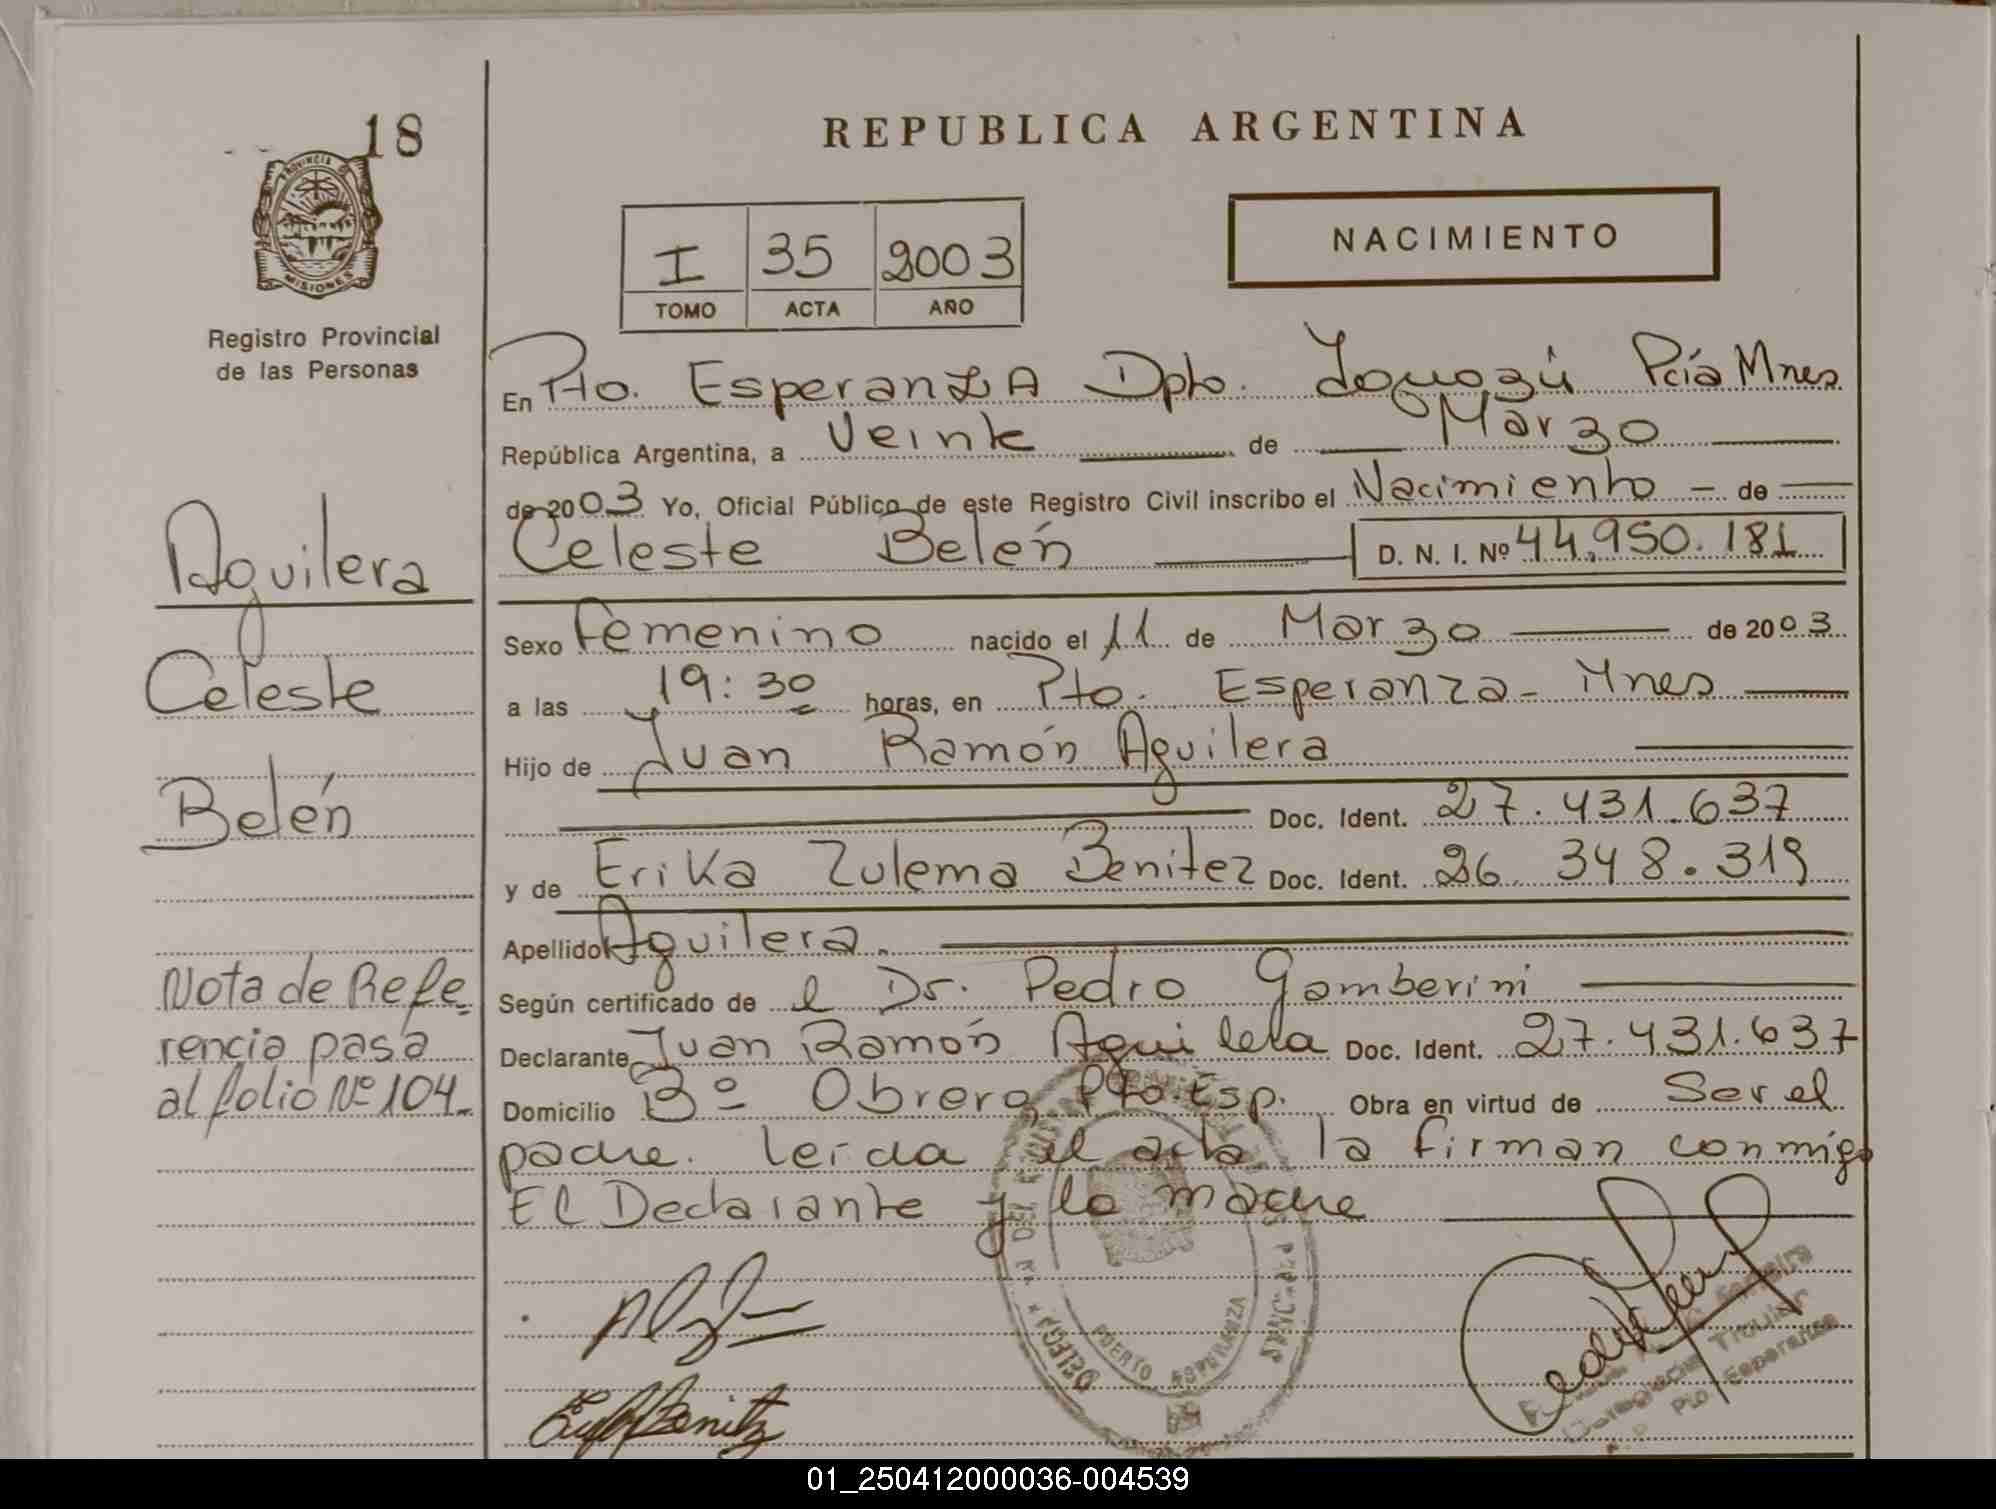 18
PROVINCIA D
MISIONES
Registro Provincial
de las Personas
REPUBLICA ARGENTINA
NACIMIENTO
I 35 2003
TOMO ACTA AÑO
En Pto. Esperanza Dpto. Iguazú Pcía Mnes
República Argentina, a Veinte de Marzo
de 2003 Yo, Oficial Público de este Registro Civil inscribo el Nacimiento - de
Celeste Belén D. N. I. Nº 44.950.181
Sexo Femenino nacido el 11 de Marzo de 2003
a las 19:30 horas, en Pto. Esperanza - Mnes
Hijo de Juan Ramón Aguilera
Doc. Ident. 27.431.637
y de Erika Zulema Benitez Doc. Ident. 26.348.319
Apellido Aguilera.
Según certificado de el Dr. Pedro Gamberini
Declarante Juan Ramón Aguilera Doc. Ident. 27.431.637
Domicilio Bº Obrero Pto. Esp. Obra en virtud de Ser el
padre. leída el acta la firman conmigo
El Declarante y la madre
Aguilera
Celeste
Belén
Nota de Refe-
rencia pasa
al folio Nº 104.
PUERTO ESPERANZA
Titular
Pto Esperanza
01_250412000036-004539